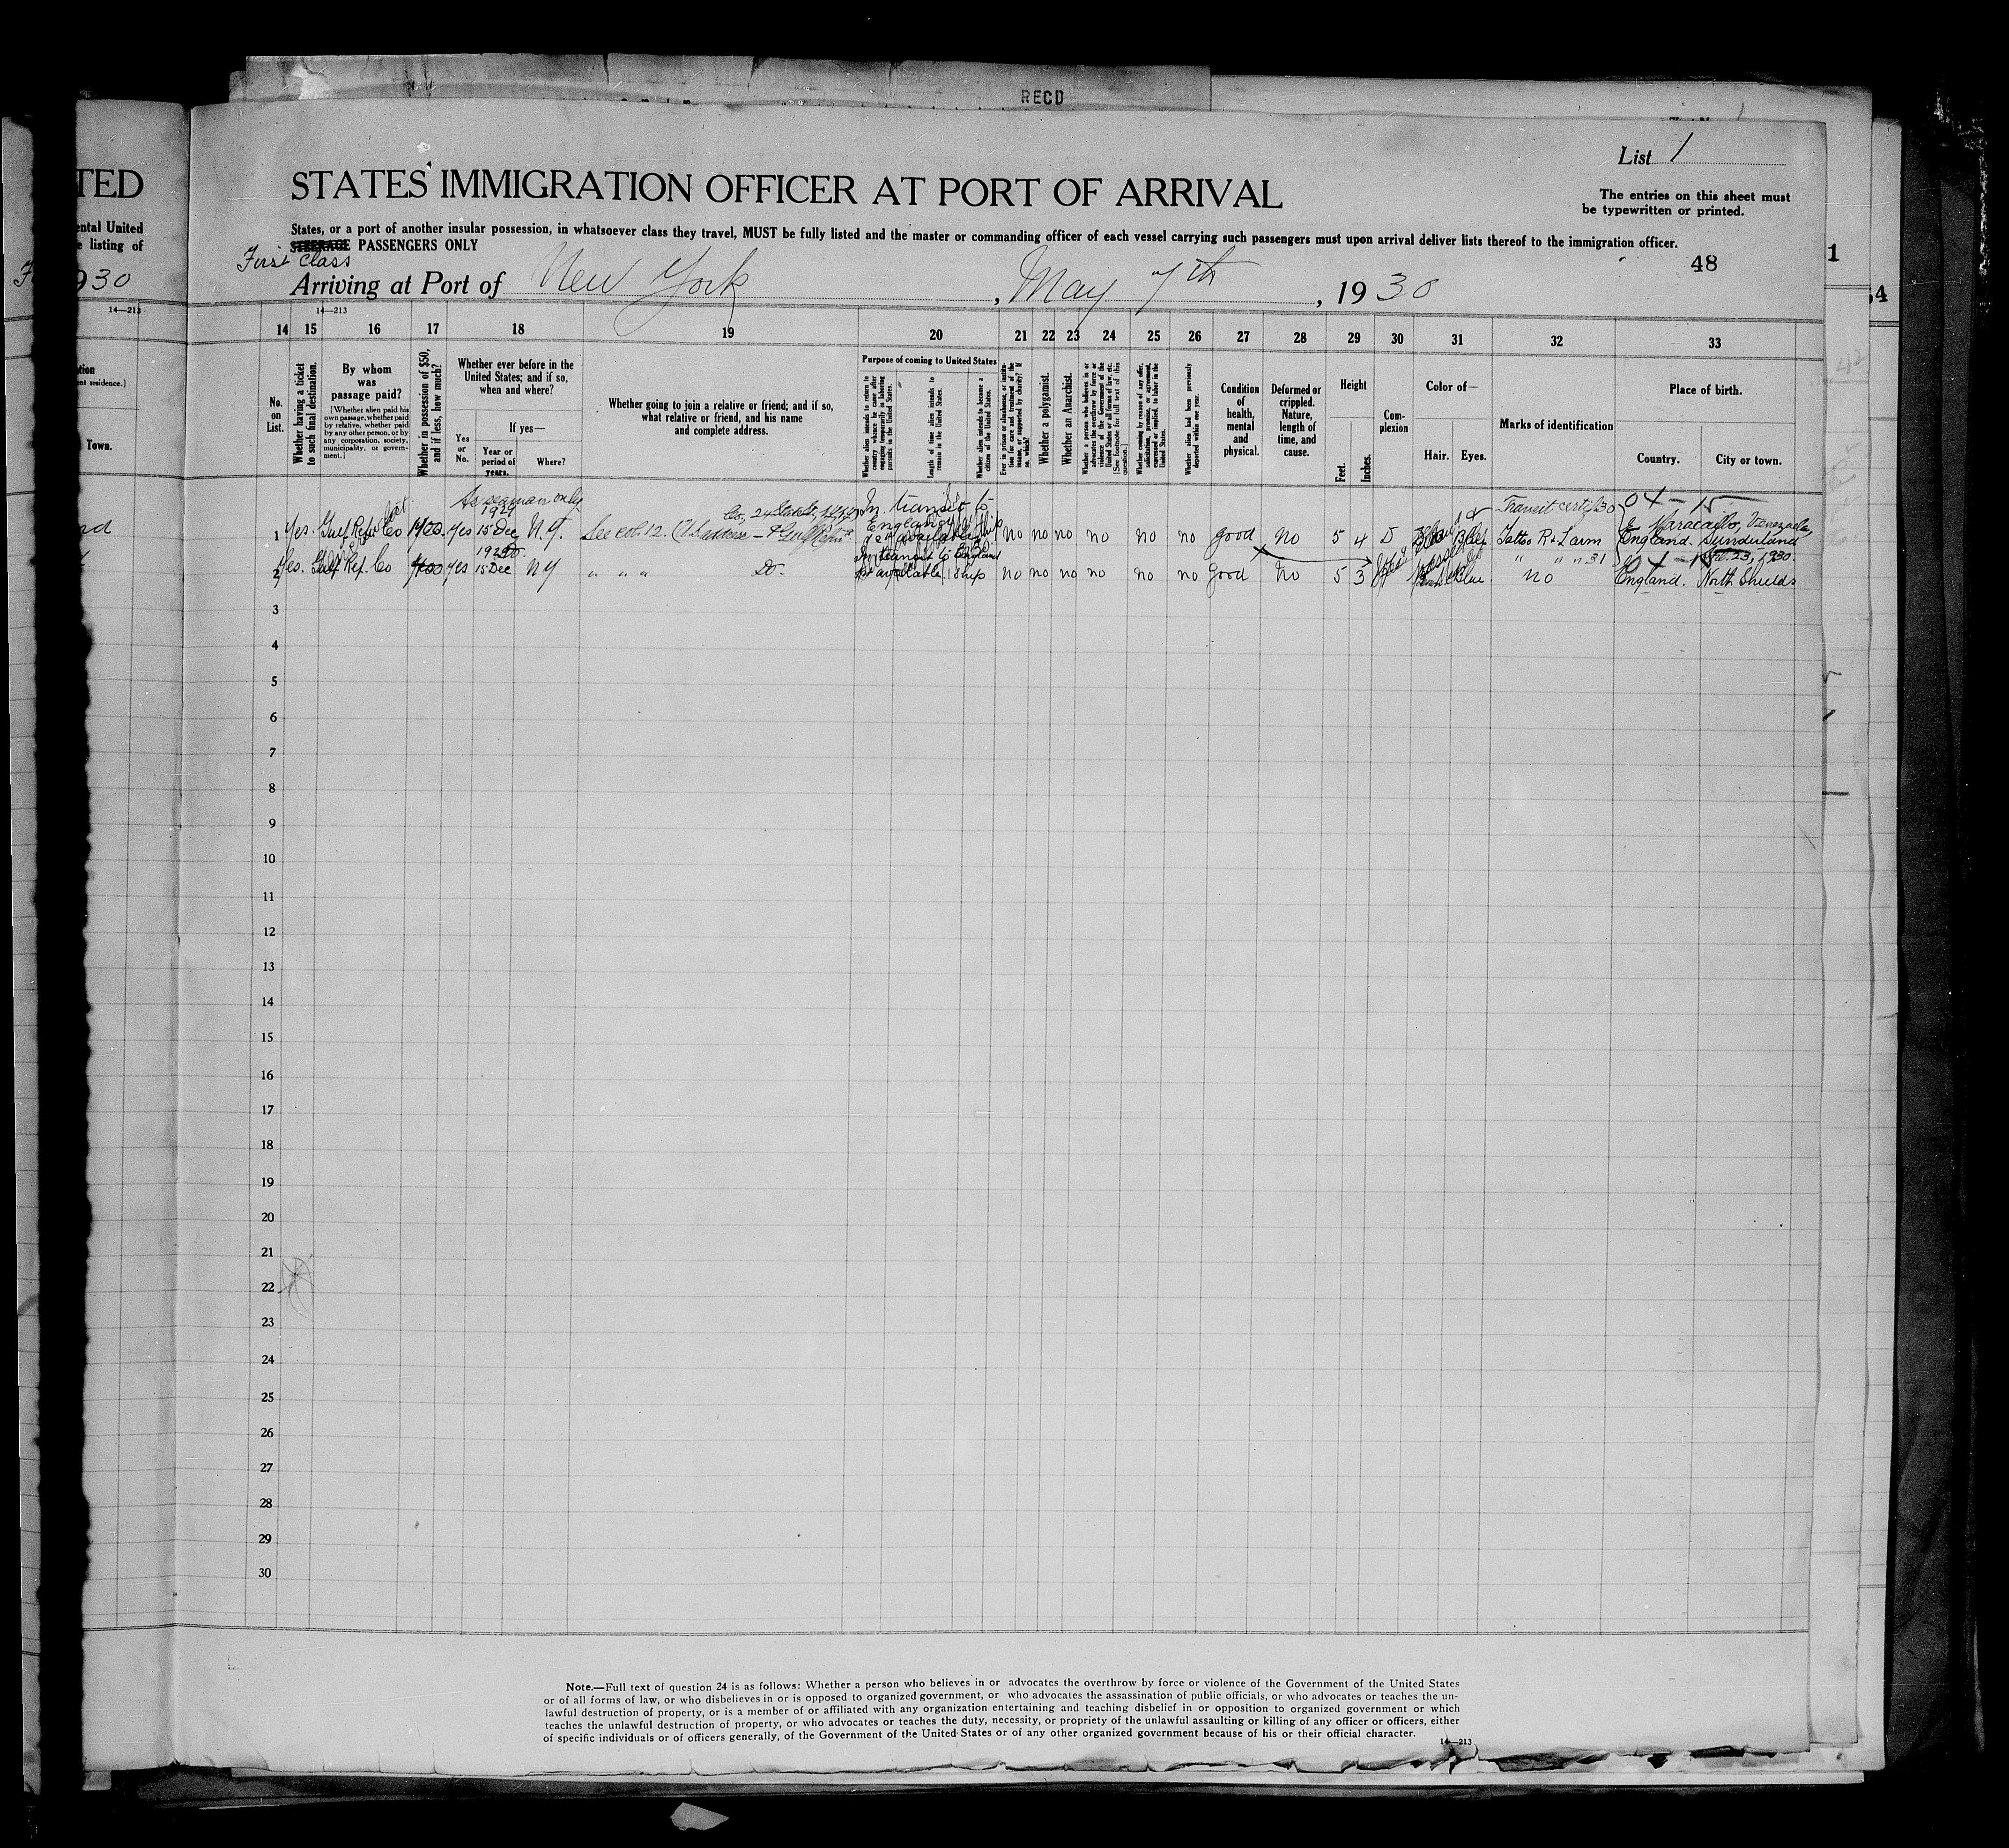 RECD
List 1
TED
STATES IMMIGRATION OFFICER AT PORT OF ARRIVAL
The entries on this sheet must
be typewritten or printed.
ental United
e listing of
States, or a port of another insular possession, in whatsoever class they travel, MUST be fully listed and the master or commanding officer of each vessel carrying such passengers must upon arrival deliver lists thereof to the immigration officer.
STEERAGE PASSENGERS ONLY
First Class
48
1
30
Arriving at Port of New York, May 7th, 1930
4
14—213
14—213
14 15 16 17 18 19 20 21 22 23 24 25 26 27 28 29 30 31 32 33
No. on List.
Whether having a ticket to such final destination.
By whom was passage paid?
[Whether alien paid his own passage, whether paid by relative, whether paid by any other person, or by any corporation, society, municipality, or government.]
Whether in possession of $50, and if less, how much?
Whether ever before in the United States; and if so, when and where?
Yes or No.
If yes—
Year or period of years.
Where?
Whether going to join a relative or friend; and if so, what relative or friend, and his name and complete address.
Purpose of coming to United States
Whether alien intends to return to country whence he came after engaging temporarily in laboring pursuits in the United States.
Length of time alien intends to remain in the United States.
Whether alien intends to become a citizen of the United States.
Ever in prison or almshouse, or institution for care and treatment of the insane, or supported by charity? If so, which?
Whether a polygamist.
Whether an Anarchist.
Whether a person who believes in or advocates the overthrow by force or violence of the Government of the United States or all forms of law, etc. [See footnote for full text of this question.]
Whether coming by reason of any offer, solicitation, promise, or agreement, expressed or implied, to labor in the United States.
Whether alien had been previously deported within one year.
Condition of health, mental and physical.
Deformed or crippled. Nature, length of time, and cause.
Height
Feet.
Inches.
Complexion
Color of—
Hair.
Eyes.
Marks of identification
Place of birth.
Country.
City or town.
Town.
As seaman only
1929
In transit to
Transit certif 30
04 - 15
1 Yes. Gulf Ref. Co yes 15 Dec N.Y. See col. 12. no no no no no no good no 5 4 D Tattoo R & L arm England. Sunderland
Maracaibo, Venezuela
England
1929
In transit to England
" " " 31
23, 1930
2 Yes. Gulf Ref. Co yes 15 Dec NY " " " Do- 1st available ship no no no no no no good no 5 3 Blue. no England. North Shields
3
4
5
6
7
8
9
10
11
12
13
14
15
16
17
18
19
20
21
22
23
24
25
26
27
28
29
30
Note.—Full text of question 24 is as follows: Whether a person who believes in or advocates the overthrow by force or violence of the Government of the United States
or of all forms of law, or who disbelieves in or is opposed to organized government, or who advocates the assassination of public officials, or who advocates or teaches the un-
lawful destruction of property, or is a member of or affiliated with any organization entertaining and teaching disbelief in or opposition to organized government or which
teaches the unlawful destruction of property, or who advocates or teaches the duty, necessity, or propriety of the unlawful assaulting or killing of any officer or officers, either
of specific individuals or of officers generally, of the Government of the United States or of any other organized government because of his or their official character.
14—213